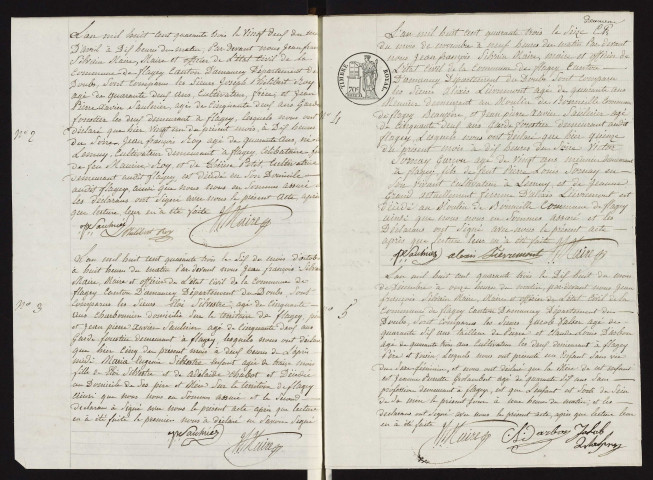 N° 2
L'an mil huit cent quarante trois le vingt deux du mois
D'avril à Dix heures du matin, Par devant nous jean françois
Silvain Maire, Maire et officier de l'état Civil de la
Commune de flagey Canton D'amancey Département du
Doubs, Sont comparus les Sieurs Joseph Philibert Roy,
agé de quarante deux ans, Cultivateur, frère, et jean
Pierre Xavier Saulnier, agé de Cinquante deux ans Garde
forestier les deux demeurant à flagey, lesquels nous ont
déclaré que hier vingt un du présent mois, à Dix heures
du Soir, jean françois Roy agé de quarante ans, né à
Cultivateur demeurant à flagey Célibataire fils
de feu Roy, et de Petit Cultivatrice
demeurant audit flagey, est décédé en Son Domicile
audit flagey, ainsi que nous nous en Sommes assuré et
les déclarans ont Signé avec nous le présent acte, après
que lecture leur en a été faite
jpx Saulnier
Philibert Roy
Maire
N° 3
L'an mil huit cent quarante trois le Six du mois d'octobre
à huit heures du matin Par devant nous jean françois Silvain
Maire, Maire et officier de l'état Civil de la Commune de
flagey Canton D'amancey Département du Doubs, Sont
Comparus les Sieurs Eloi Silvestre, agé de Cinquante
ans charbonnier domicilié Sur le territoire de flagey, père
et jean pierre Xavier Saulnier agé de Cinquante deux ans
Garde forestier demeurant à flagey, lesquels nous ont déclaré
que hier Cinq du présent mois à deux heures de l'après
midi Marie Eugénie Silvestre enfant agé de treize mois
fille de Eloi Silvestre et de Adelaïde Chabot est Décédée
au Domicile de Ses père et Mère Sur le territoire de flagey
ainsi que nous nous en Sommes assuré et le Second
déclarant a Signé avec nous le présent acte après que lecture
en a été faite le premier nous a déclaré ne Savoir Signer
jpx Saulnier
Maire
TIMBRE ROYAL
N° 4
L'an mil huit cent quarante trois le Seize
du mois de novembre à neuf heures du matin Par devant
nous jean françois Silvain Maire, maire et officier de
l'état Civil de la Commune de flagey Canton
D'amancey Département du Doubs Sont comparus
les Sieurs Alexis Lievremont agé de quarante ans
Meunier demeurant au Moulin de Bonneille Commune
de flagey et jean pierre Xavier Saulnier agé
de Cinquante deux ans Garde forestier demeurant audit
flagey, Lesquels nous ont déclaré que hier quinze
du présent mois à dix heures du Soir Victor
Sornay Garçon agé de vingt ans meunier demeurant
à flagey, fils de feu Pierre Louis Sornay en
Son vivant Cultivateur à et de Jeanne
Grand actuellement femme dudit Lievremont est
Décédé au Moulin de Bonneille Commune de flagey
ainsi que nous nous en Sommes assuré et les
Déclarans ont Signé avec nous le présent acte
après que lecture leur en a été faite
jpx Saulnier
alexis Lievremont
Maire
N° 5
L'an mil huit cent quarante trois le Dix huit du mois
de Décembre à onze heures du matin, par devant nous jean
françois Silvain Maire, Maire et officier de l'état Civil de la
Commune de flagey Canton D'amancey Département du
Doubs, Sont Comparus les Sieurs Jacob agé de
quarante Six ans et Claude Darbon
agé de quarante ans Cultivateur les deux demeurant à flagey
Père et voisin, Lesquels nous ont présenté un Enfant Sans vie
du Sexe féminin, et nous ont déclaré que la Mère de cet enfant
est Jeanne agée de quarante Six ans Sans
profession demeurant à flagey, et que l'enfant est Sorti du Sein
de Sa mère le présent jour à une heure du matin, et les
déclarans ont Signé avec nous le présent acte, après que lecture leur
en a été faite
Maire
C. Darbon
Jakob